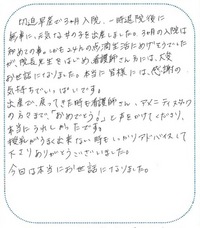 切迫早産で3ヶ月入院、一時退院後に
無事に、元気な女の子を出産しました。3ヶ月の入院は
初めての事。しかも2人目の点滴生活にめげそうでしたが
が、院長先生をはじめ、看護師さん方には、大変
お世話になりました。本当に皆様には、感謝の
気持ちでいっぱいです。
出産で、戻ってきた時も看護師さん、アメニティスタッフ
の方々まで、「おめでとう!」と声をかけてくださり、
本当にうれしかったです。
授乳がうまく出来ない時もしっかりアドバイスして
下さりありがとうございました。
今回は本当にお世話になりました。